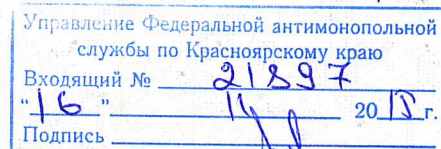 Управление Федеральной антимонопольной
службы по Красноярскому краю
Входящий № 21897
"16" 11 2015 г.
Подпись